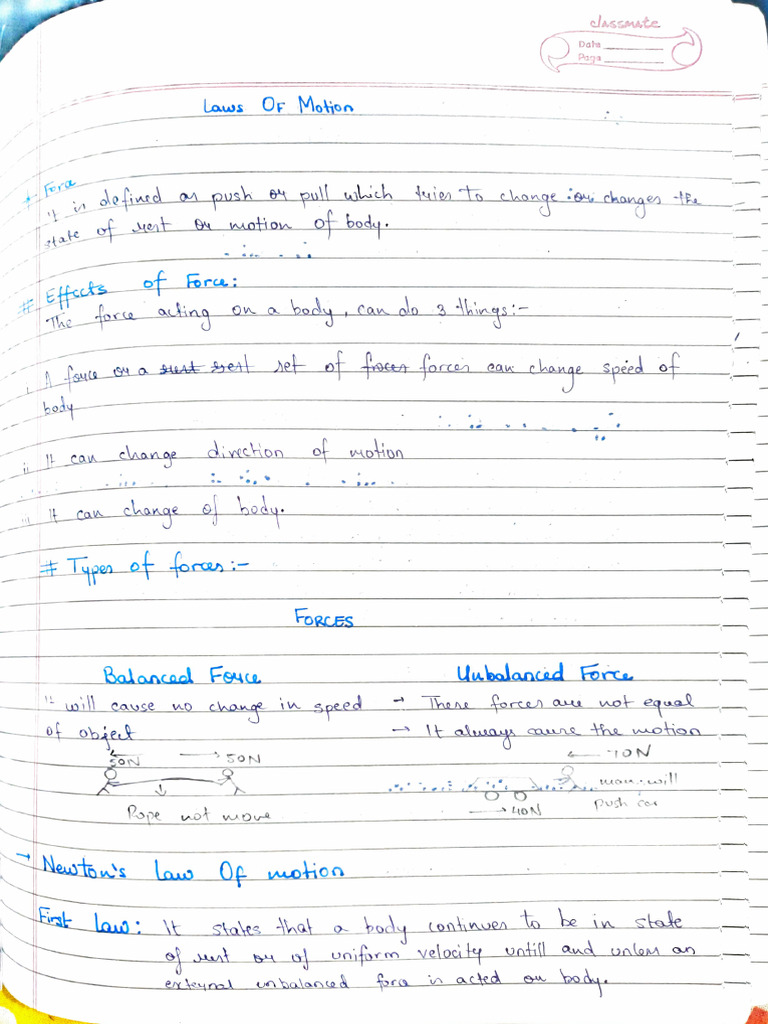 classmate
Date
Page
Laws Of Motion
Force
it is defined as push or pull which tries to change or changes the
state of rest or motion of body.
# Effects of Force:
The force acting on a body, can do 3 things:-
i. A force or a set of forces can change speed of
body
ii It can change direction of motion
iii It can change of body.
# Types of forces:-
FORCES
Balanced Force
Unbalanced Force
It will cause no change in speed
of object
→ These forces are not equal
→ It always cause the motion
50N → 50N
Rope not move
← 70N
man will
push car
→ 40N
→ Newton's Law Of motion
First Law: It states that a body continues to be in state
of rest or of uniform velocity untill and unless an
external unbalanced force is acted on body.